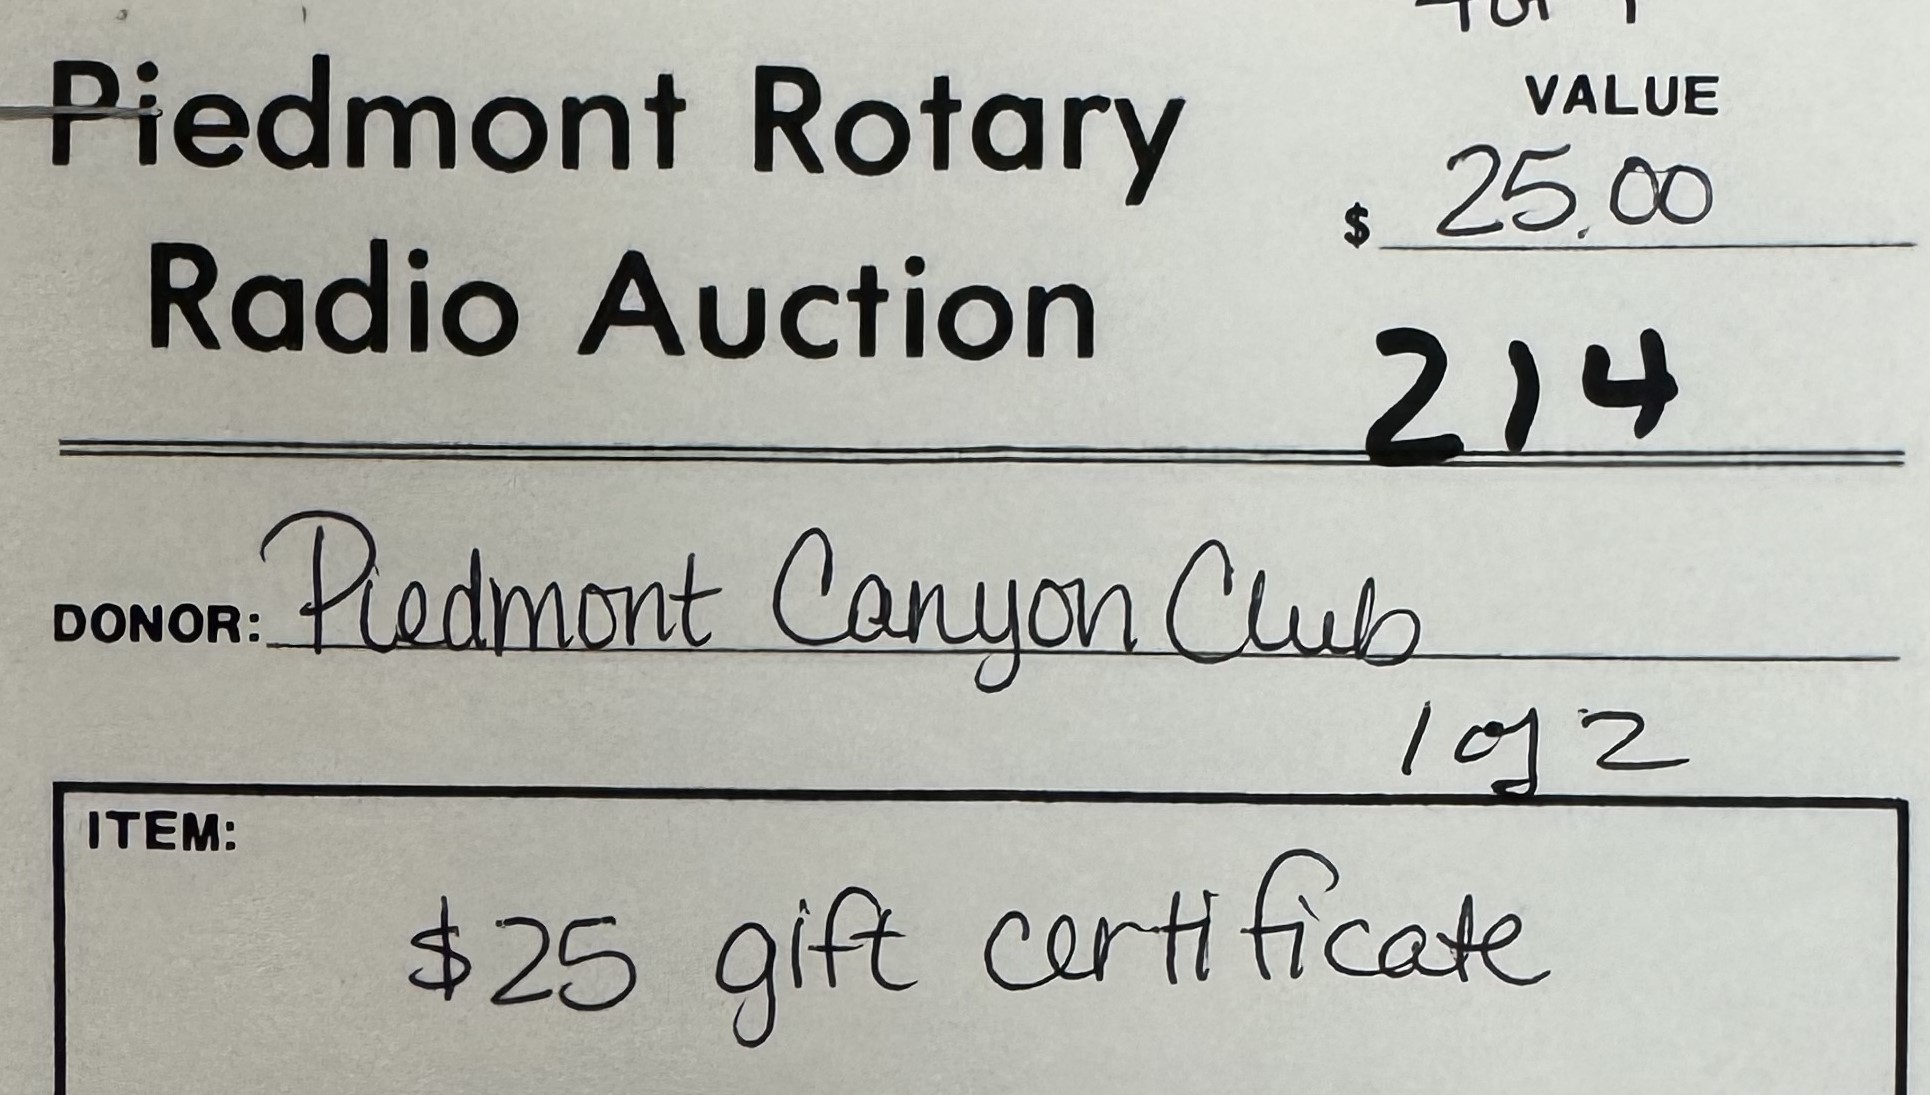 Piedmont Rotary
Radio Auction
VALUE
$ 25.00
214
DONOR: Piedmont Canyon Club
1 of 2
ITEM:
$25 gift certificate